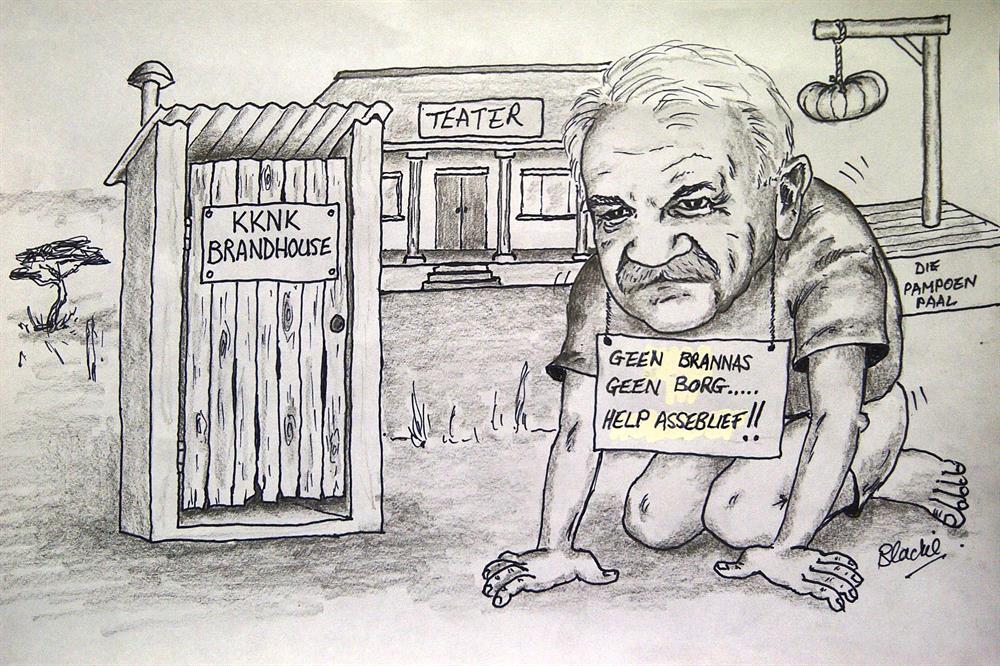 TEATER
KKNK
BRANDHOUSE
DIE
PAMPOEN
PAAL
GEEN BRANNAS
GEEN BORG.....
HELP ASSEBLIEF!!
Blackie